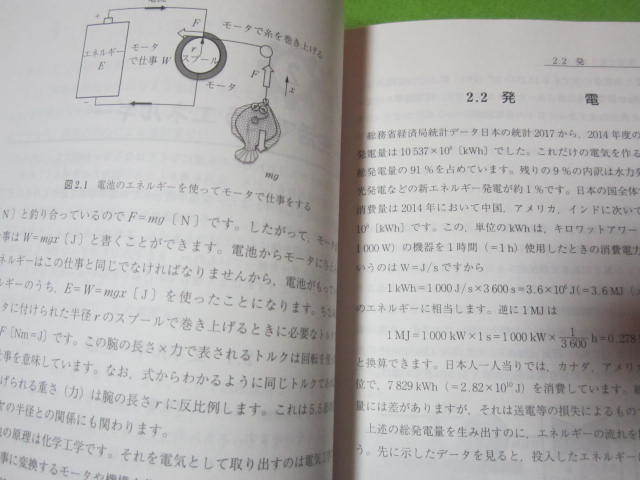 電流
F
モータで糸を巻き上げる
+
エネルギー
E
モータ
で仕事 W
r
スプール
モータ
F
x
mg
図2.1 電池のエネルギーを使ってモータで仕事をする
N〕と釣り合っているので F=mg〔N〕です。したがって,モータ
仕事は W=mgx〔J〕と書くことができます。電池からモータに
ネルギーはこの仕事と同じでなければなりませんから,電池がもって
ルギーのうち,E=W=mgx〔J〕を使ったことになります。
タに付けられた半径 r のスプールで巻き上げるときに必要なトル
F〔Nm=J〕です。この腕の長さ×力で表されるトルクは回転を
仕事を意味しています。なお,式からわかるように同じトルクであ
げられる重さ(力)は腕の長さ r に反比例します。これは5.5
ヤの半径との関係にも関わります。
の原理は化学工学です。それを電気として取り出すのは電気
事に変換するモータや機構
2.2 発
2.2 発 電
総務省経済局統計データ日本の統計2017から,2014年度の
発電量は10 537×10⁸〔kWh〕でした。これだけの電気を作る
総発電量の91%を占めています。残りの9%の内訳は水力発
光発電などの新エネルギー発電が約1%です。日本の国全体
消費量は2014年において中国,アメリカ,インドに次いで
10⁸〔kWh〕です。この,単位のkWhは,キロワットアワー
1 000 W)の機器を1時間(=1 h)使用したときの消費電力
いうのは W=J/s ですから
1 kWh=1 000 J/s×3 600 s=3.6×10⁶ J(=3.6 MJ(
のエネルギーに相当します。逆に1 MJは
1 MJ=1 000 kW×1 s=1 000 kW×1/3 600 h=0.278
と換算できます。日本人一人当りでは,カナダ,アメリカ
位で,7 829 kWh(=2.82×10¹⁰ J)を消費しています。
量には差がありますが,それは送電等の損失によるもの
上述の総発電量を生み出すのに,エネルギーの流れを
う。先に示したデータを見ると,投入したエネルギー